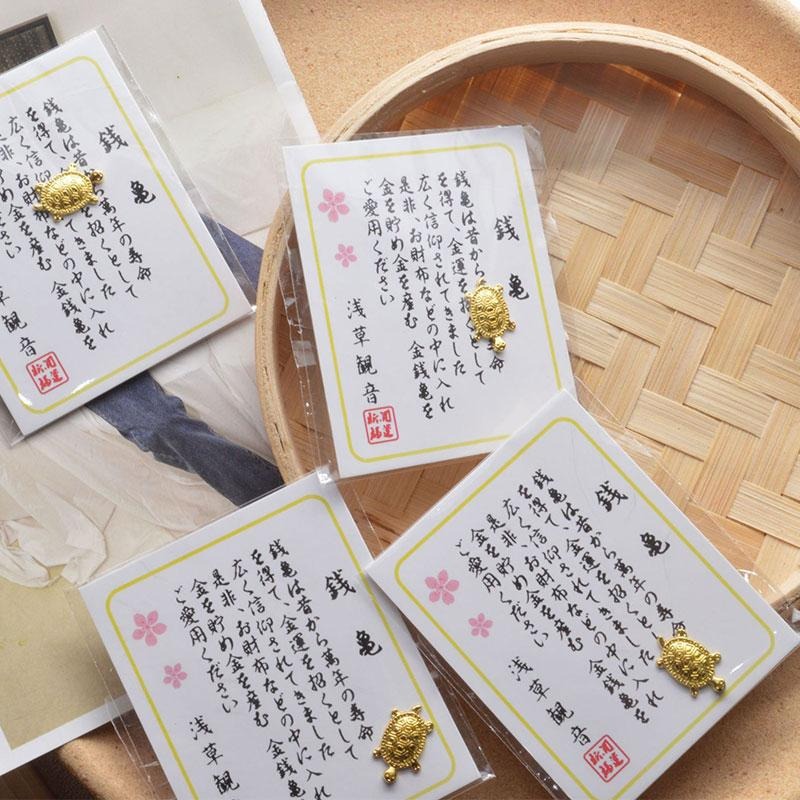 銭亀
銭亀は昔 萬年の寿命
を得て、 を招くとして
広く信仰 てきました
是非、お財布などの中に入れ
貯め 産む 金銭亀を
ください
草観音
開運
祈福
銭亀
銭亀は昔から 命
を得て、金運を招くとして
広く信仰されてきました
是非、お財布などの中に入れ
金を貯め金を産む 金銭亀を
ご愛用ください
浅草観音
開運
祈福
銭亀
銭亀は昔から萬年の寿命
を得て、金運を招くとして
広く信仰されてきました
是非、お財布などの中に入れ
金を貯め金を産む 金銭亀を
ご愛用ください
浅草観
銭亀
銭亀は昔から萬年の寿命
を得て、金運を招くとして
広く信仰されてきました
是非、お財布などの中に入れ
金を貯め金を産む 金銭亀を
ご愛用ください
浅草観音
開運
祈福